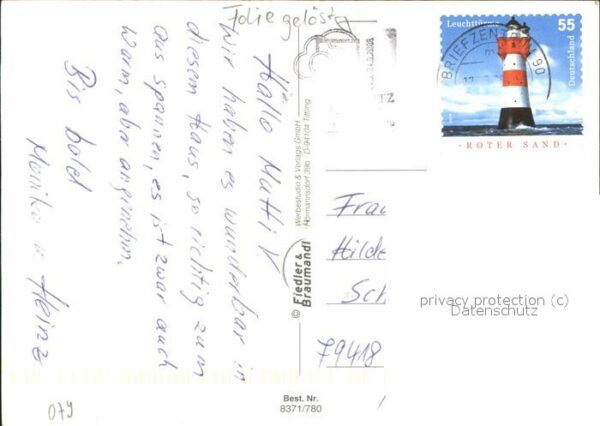 Folie gelöst
Hallo Mutti!
Wir haben es wunderbar in
diesem Haus, so richtig zum
aus spannen, es ist zwar auch
warm, aber angenehm.
Bis bald
Monika u Heinz
079
© Fiedler &
Braumandl
Werbestudio & Verlags GmbH
Hormannsdorf 39b D-94104 Tittling
Best. Nr.
8371/780
BRIEFZENTRUM 90
Leuchttürme
55
Deutschland
· ROTER SAND ·
Frau
Hilde
Sch
79418
privacy protection (c)
Datenschutz